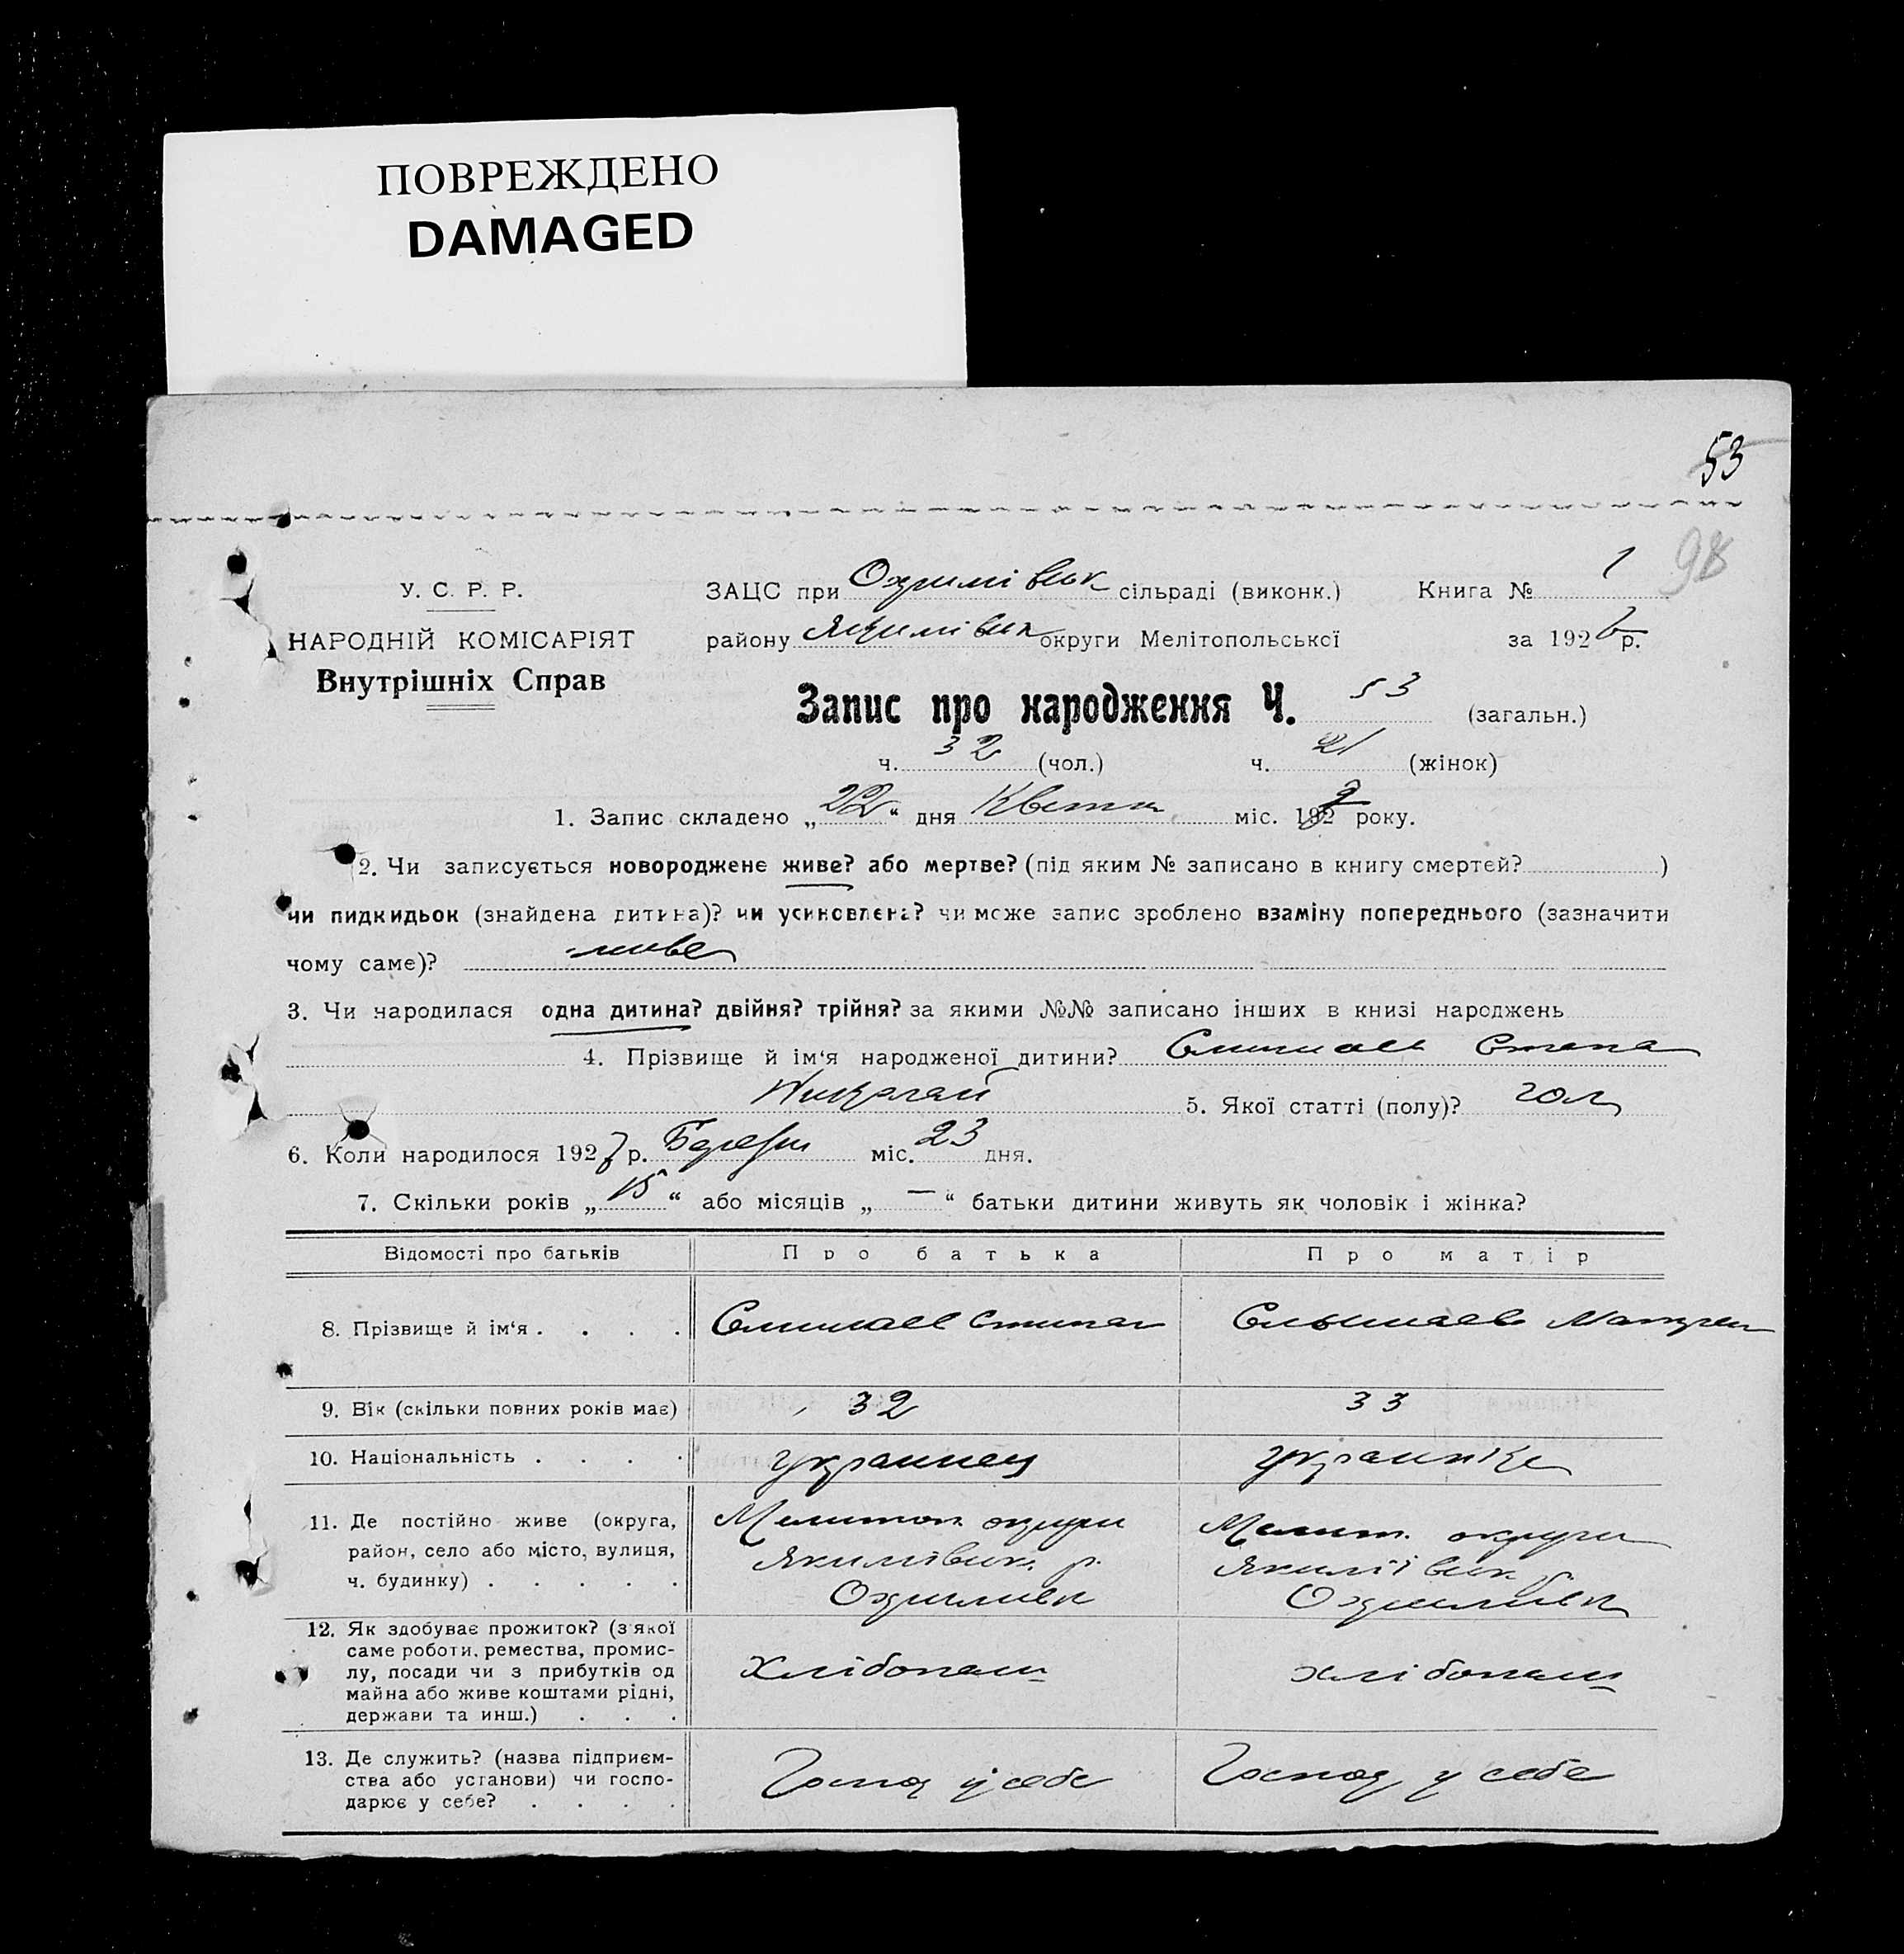 ПОВРЕЖДЕНО
DAMAGED
53
98
У. С. Р. Р.
НАРОДНІЙ КОМІСАРІЯТ
Внутрішніх Справ
ЗАЦС при Охримівск сільраді (виконк.) Книга № 1
району Якимівск округи Мелітопольської за 1926 р.
Запис про народження Ч. 53 (загальн.)
ч. 32 (чол.) ч. 21 (жінок)
1. Запис складено „22“ дня Квітн міс. 192 року.
2. Чи записується новороджене живе? або мертве? (під яким № записано в книгу смертей? )
чи пидкидьок (знайдена дитина)? чи усиновлена? чи може запис зроблено взаміну попереднього (зазначити
чому саме)? живе
3. Чи народилася одна дитина? двійня? трійня? за якими №№ записано інших в книзі народжень
4. Прізвище й ім‘я народженої дитини?
Николай 5. Якої статті (полу)? чол
6. Коли народилося 192 р. Березн міс. 23 дня.
7. Скільки років „15“ або місяців „—“ батьки дитини живуть як чоловік і жінка?
Відомості про батьків Про батька Про матір
8. Прізвище й ім‘я . . . .
9. Вік (скільки повних років має) 32 33
10. Національність . . . . украинец украинка
11. Де постійно живе (округа,
район, село або місто, вулиця,
ч. будинку) . . . . .
Мелитоп. округи
Якимівск. р.
Охримівк
Мелит. округи
Якимівск
Охримівк
12. Як здобуває прожиток? (з якої
саме роботи, ремества, промис-
лу, посади чи з прибутків од
майна або живе коштами рідні,
держави та инш.) . . .
Хлібопаш
хлібопаш
13. Де служить? (назва підприєм-
ства або установи) чи госпо-
дарює у себе? . . . .
Господ у себе
Господ у себе